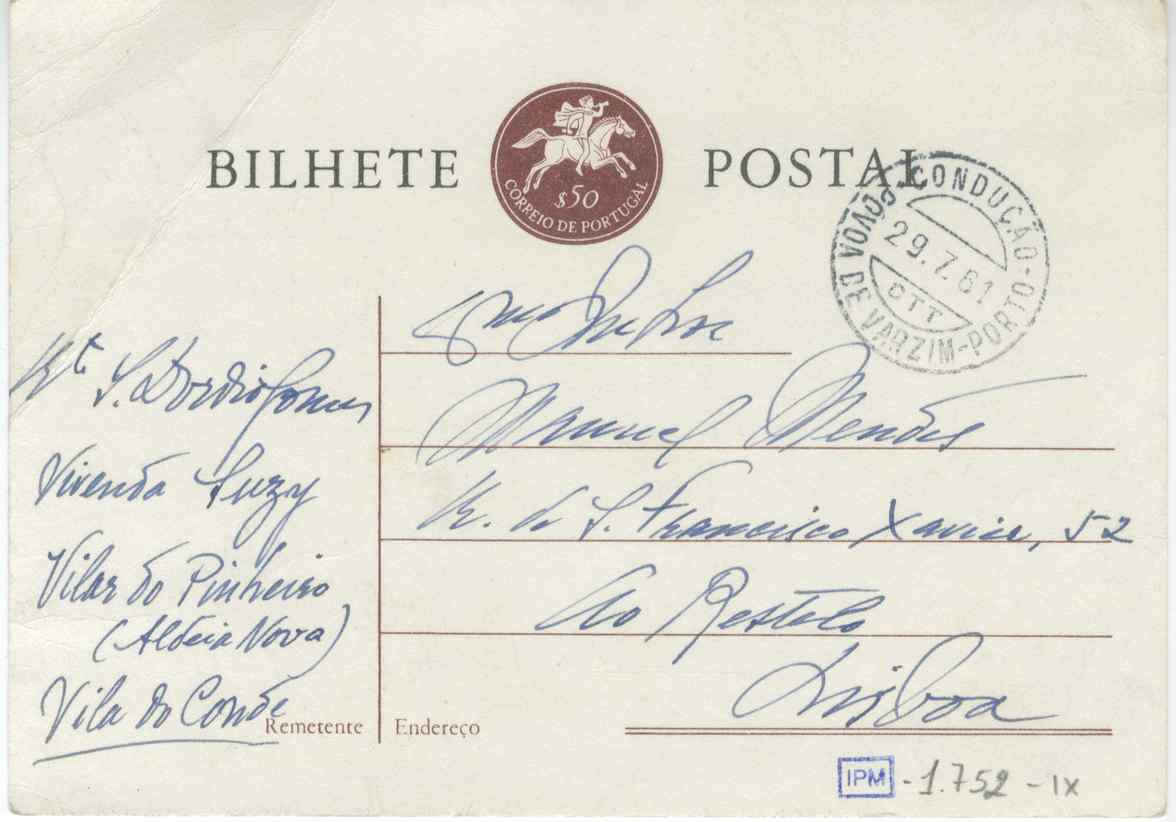 BILHETE POSTAL
$50
CORREIO DE PORTUGAL
CONDUÇÃO
29.7.61
CTT
POVOA DE VARZIM-PORTO
Rte S. Dordio Gomes
Vivenda Suzy
Vilar do Pinheiro
(Aldeia Nova)
Vila do Conde
Remetente
Manuel Mendes
R. de S. Francisco Xavier, 52
Ao Restelo
Lisboa
Endereço
IPM - 1.752 - IX